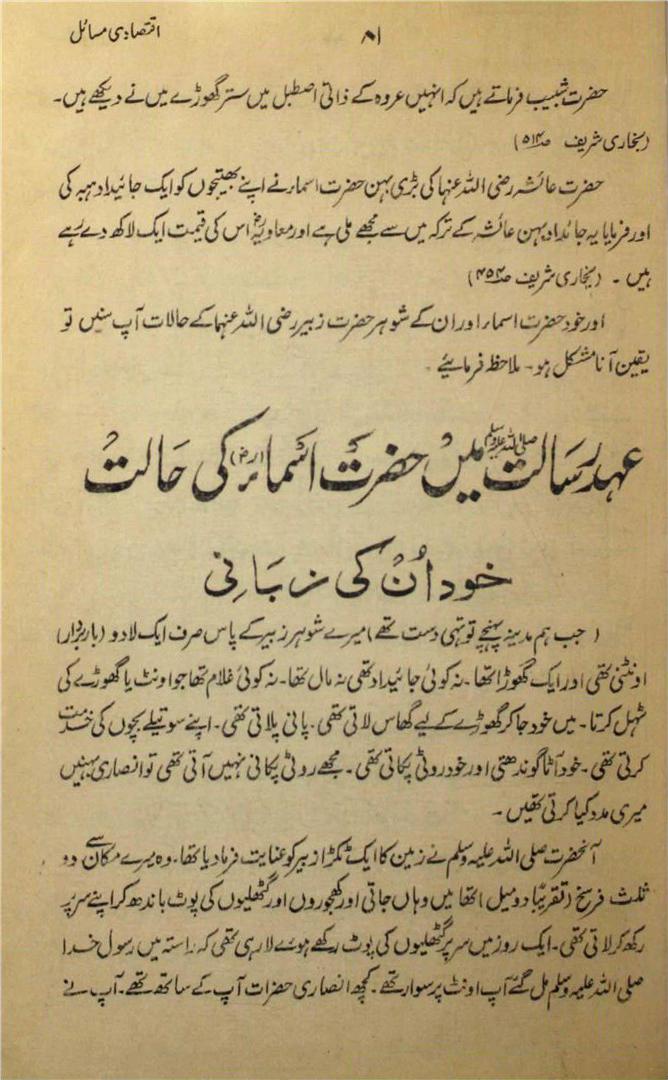 اقتصادی مسائل
۸۱
حضرت شبیب فرماتے ہیں کہ انہیں عروہ کے ذاتی اصطبل میں ستر گھوڑے میں نے دیکھے ہیں۔
(بخاری شریف صـ۵۱۴)
حضرت عائشہ رضی اللہ عنہا کی بڑی بہن حضرت اسماء نے اپنے بھتیجوں کو ایک جائیداد ہبہ کی
اور فرمایا یہ جائداد بہن عائشہ کے ترکہ میں سے مجھے ملی ہے اور معاویہؓ اس کی قیمت ایک لاکھ دے رہے
ہیں ۔ (بخاری شریف صـ۴۵۴)
اور خود حضرت اسماء اور ان کے شوہر حضرت زبیر رضی اللہ عنہما کے حالات آپ سنیں تو
یقین آنا مشکل ہو۔ ملاحظہ فرمائیے۔
عہد رسالت صلی اللہ علیہ وسلم میں حضرت اسماء (رض) کی حالت
خود اُن کی زبانی
(جب ہم مدینہ پہنچے تو تہی دست تھے) میرے شوہر زبیر کے پاس صرف ایک لادو (باربردار)
اونٹنی تھی اور ایک گھوڑا تھا۔ نہ کوئی جائیداد تھی نہ مال تھا۔ نہ کوئی غلام تھا جو اونٹ یا گھوڑے کی
ٹہل کرتا۔ میں خود جا کر گھوڑے کے لیے گھاس لاتی تھی۔ پانی پلاتی تھی۔ اپنے سوتیلے بچوں کی خدمت
کرتی تھی۔ خود آٹا گوندھتی اور خود روٹی پکاتی تھی۔ مجھے روٹی پکانی نہیں آتی تھی تو انصاری بہنیں
میری مدد کیا کرتی تھیں۔
آنحضرت صلی اللہ علیہ وسلم نے زمین کا ایک ٹکڑا زبیر کو عنایت فرما دیا تھا۔ وہ میرے مکان سے دو
ثلث فرسخ (تقریباً دو میل) تھا میں وہاں جاتی اور کھجوروں اور گٹھلیوں کی پوٹ باندھ کر اپنے سر پر
رکھ کر لاتی تھی۔ ایک روز میں سر پر گٹھلیوں کی پوٹ رکھے ہوئے لا رہی تھی کہ راستہ میں رسول خدا
صلی اللہ علیہ وسلم مل گئے آپ اونٹ پر سوار تھے۔ کچھ انصاری حضرات آپ کے ساتھ تھے۔ آپ نے